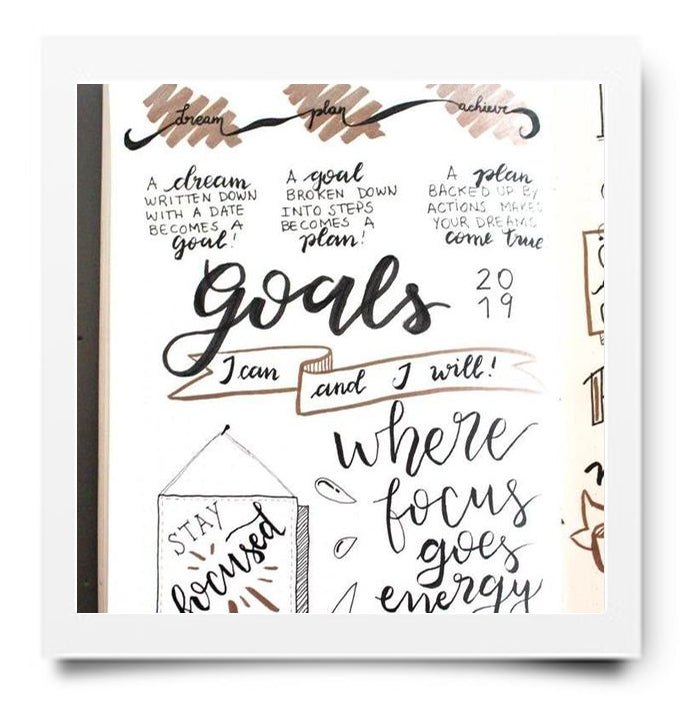 dream plan achieve
A dream
WRITTEN DOWN
WITH A DATE
BECOMES A
goal!
A goal
BROKEN DOWN
INTO STEPS
BECOMES A
plan!
A plan
BACKED UP BY
ACTIONS MAKES
YOUR DREAMS
come true
goals
20
19
I can and I will!
where
focus
goes
energy
STAY
focused